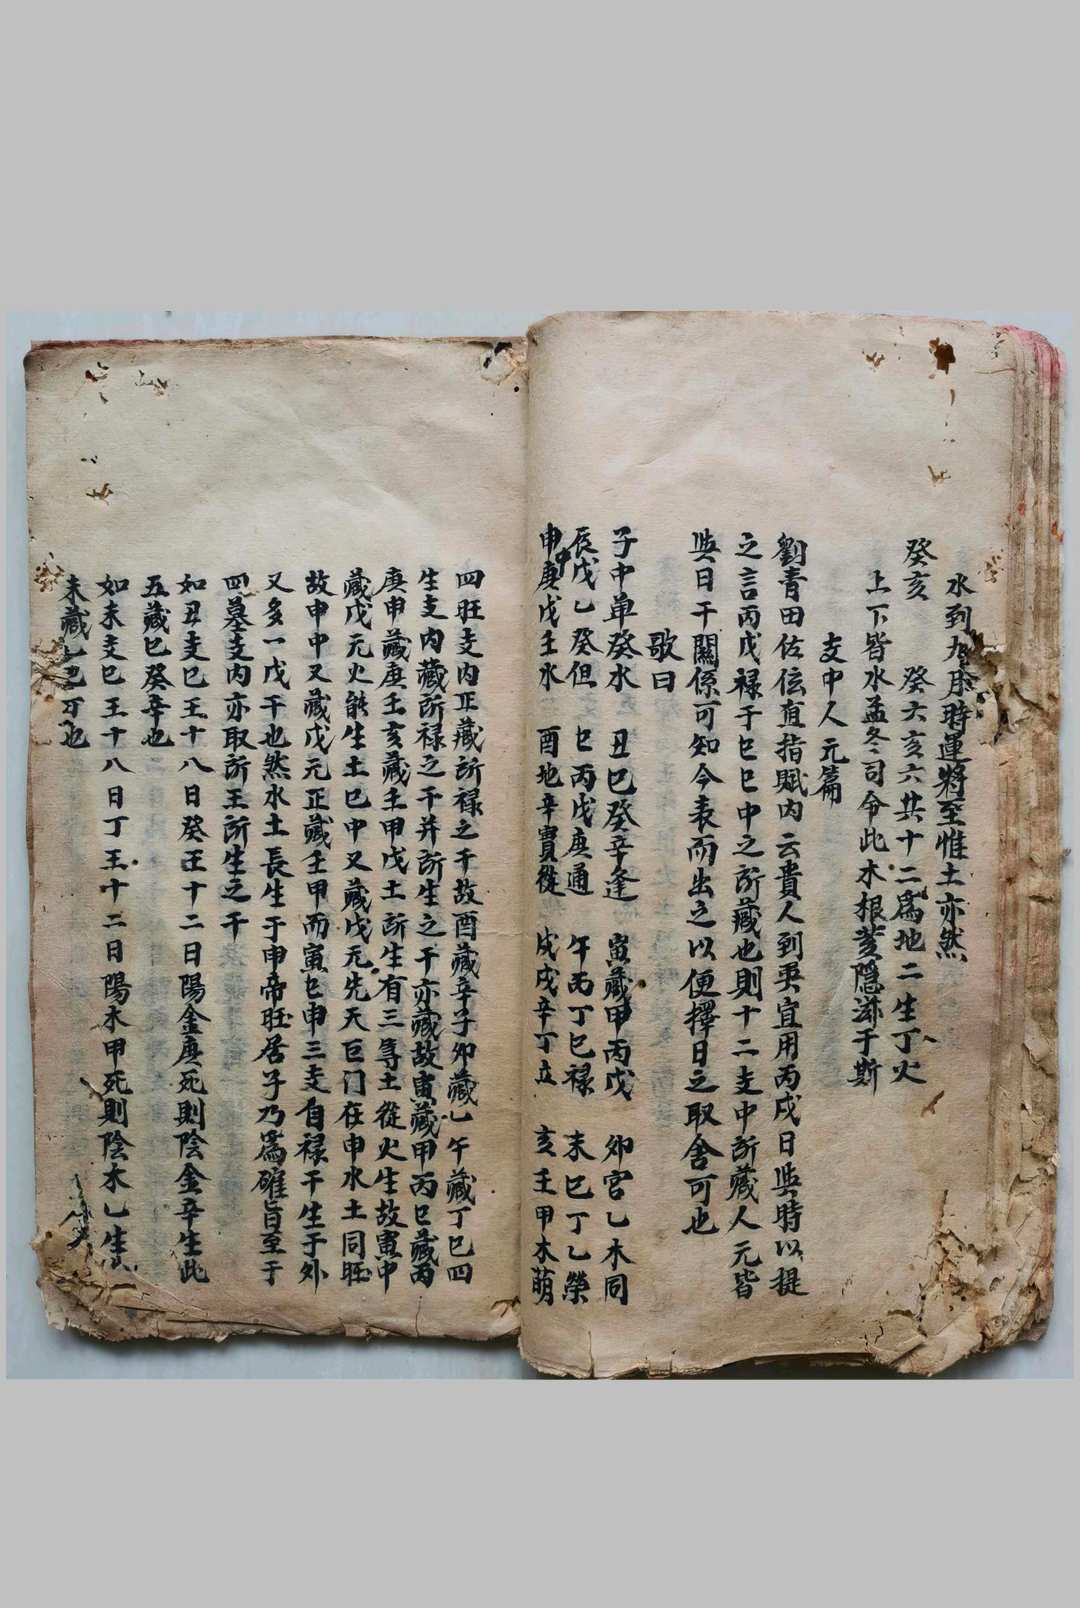 水到九月時運將至惟土亦然
癸亥 癸六亥六共十二為地二生丁火
上下皆水孟冬司令此木根荄隱滋于斯
支中人元篇
劉青田佐伭直指賦内云貴人到㢲宜用丙戌日與時以提
之言丙戊禄于巳巳中之所藏也則十二支中所藏人元皆
與日干關係可知今表而出之以便擇日之取舍可也
歌曰
子中单癸水 丑巳癸辛逢 寅藏甲丙戊 卯宫乙木同
辰戊乙癸但 巳丙戊庚通 午丙丁巳禄 末巳丁乙榮
申中庚戊壬水 酉地辛實從 戌戊辛丁立 亥壬甲木萌
四旺支内正藏所禄之干故酉藏辛子卯藏乙午藏丁巳四
生支内藏所禄之干并所生之干亦藏故寅藏甲丙巳藏丙
庚申藏庚壬亥藏壬甲戊土所生有三等土從火生故寅中
藏戊元火能生土巳中又藏戊元先天巨门在申水土同旺
故申中又藏戊元正藏壬甲而寅巳申三支自禄干生于外
又多一戊干也然水土長生于申帝旺居子乃為確旨至于
四墓支内亦取所王所生之干
如丑支巳王十八日癸王十二日陽金庚死則陰金辛生此
五藏巳癸辛也
如末支巳王十八日丁王十二日陽木甲死則陰木乙生
末藏乙巳丁也